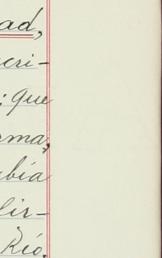 ad,
cri-
: que
rma,
abía
dir-
Río.